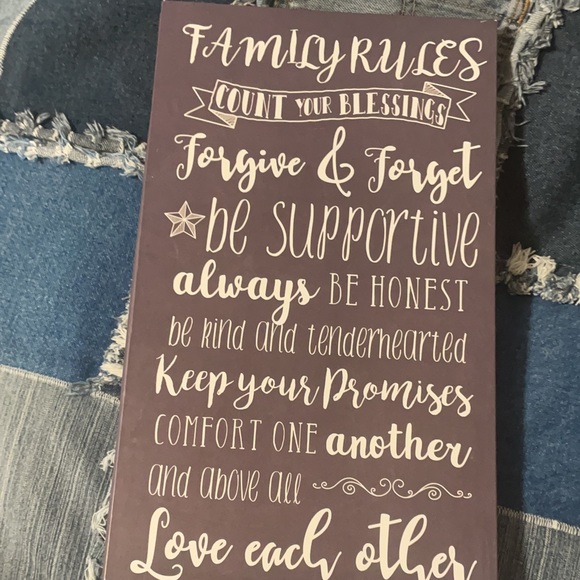 FAMILY RULES
COUNT YOUR BLESSINGS
Forgive & Forget
be supportive
always BE HONEST
be kind and tenderhearted
Keep your Promises
COMFORT ONE another
and above all
Love each other